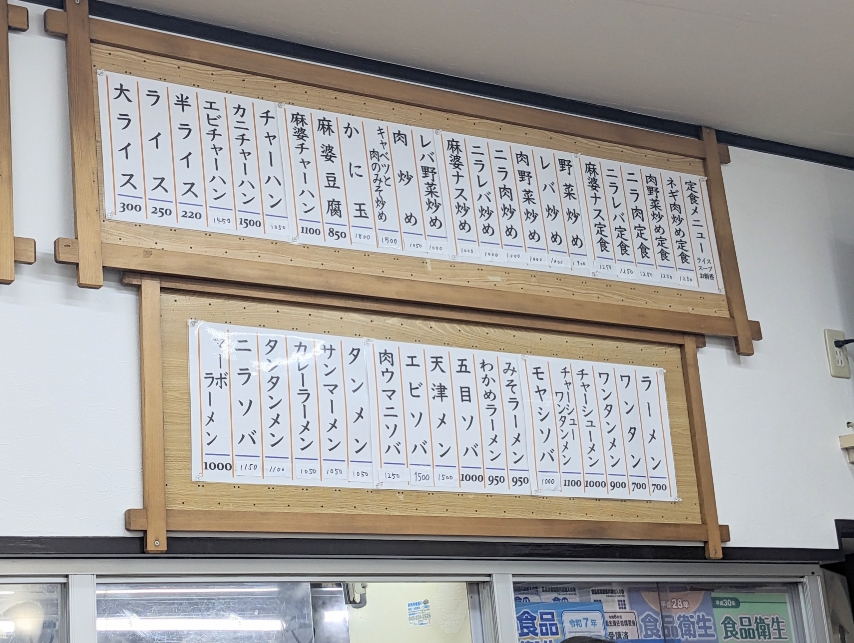 定食メニュー
ライス
スープ
お新香
ネギ肉炒め定食 1250
肉野菜炒め定食 1250
ニラ肉定食 1250
ニラレバ定食 1250
麻婆ナス定食 1250
野菜炒め 900
レバ炒め 1000
肉野菜炒め 1000
ニラ肉炒め 1000
ニラレバ炒め 1000
麻婆ナス炒め 1000
レバ野菜炒め 1000
肉炒め 1050
キャベツと
肉のみそ炒め 1500
かに玉 1800
麻婆豆腐 850
麻婆チャーハン 1100
チャーハン 1050
カニチャーハン 1500
エビチャーハン 1450
半ライス 220
ライス 250
大ライス 300
ラーメン 700
ワンタン 700
ワンタンメン 900
チャーシューメン 1000
チャーシュー
ワンタンメン 1100
モヤシソバ 1000
みそラーメン 950
わかめラーメン 950
五目ソバ 1000
天津メン 1500
エビソバ 1500
肉ウマニソバ 1250
タンメン 1050
サンマーメン 1050
カレーラーメン 1050
タンタンメン 1100
ニラソバ 1150
マーボ
ラーメン 1000
食品
令和7年
受講済
平成28年
食品衛生
平成30年
食品衛生